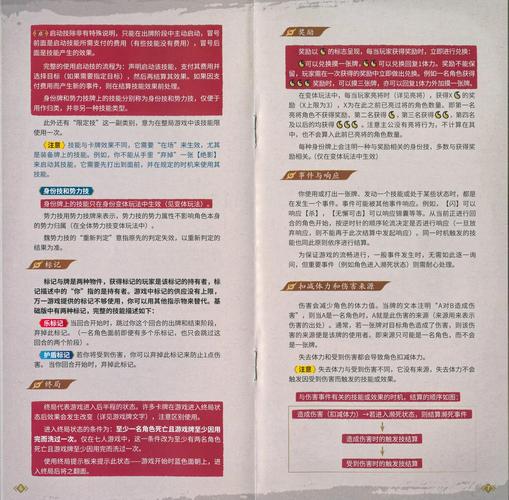 启动技除非有特殊说明，只能在出牌阶段中主动启动，冒号
前面是启动技能所需支付的费用（有些技能没有费用），冒号后
面是技能产生的效果。
完整的使用启动技的流程为：声明启动该技能，支付其费用并
选择目标（如果需要指定目标），然后再结算其效果。如果因支
付费用而产生新的事件，则在结算技能效果前处理。
身份牌和势力技牌上的技能分别称为身份技和势力技，仅便于
用作归类，并非另一种技能类型。
此外还有“限定技”这一副类别，意为在整局游戏中该技能限
使用一次。
注意 技能与卡牌效果不同，它需要“在场”来生效，尤其
是装备牌上的技能。例如，你不能从手里“弃掉”一张【绝影】
来启动其技能，它需要先打出到面前，并在规定的时机来使用其
技能。
身份技和势力技
身份牌上的技能只在身份变体玩法中生效（见变体玩法）。
势力技用势力技牌来表示，势力技的势力属性不影响角色本身
的势力归属（在全势力技变体玩法中）。
魏势力技的“重新判定”意指原先的判定失效，以重新判定的
结果为准。
标记
标记与牌是两种物件，获得标记的玩家是该标记的持有者，标
记描述中的“你”指的是持有者。游戏中标记的供应没有上限，
万一游戏提供的标记不够使用，你可以用其他指示物来替代。基
础版中有两种标记，完整的技能描述如下：
乐标记 当回合开始时，跳过你这个回合的出牌和结束阶段，
弃掉此标记。（一名角色面前即便有多个乐标记，也只会跳过这
一回合的两个阶段）。
护盾标记 若你将受到伤害，你可以弃掉此标记来防止1点伤
害。 当你回合开始时，弃掉此标记。
终局
终局代表游戏进入后半程的状态。许多卡牌在游戏进入终局状
态后效果会发生改变（详见游戏牌文字），注意区别使用。
进入终局状态的条件为：至少一名角色死亡且游戏牌至少因用
完而洗过一次。仅在七人游戏中，这一条件改为至少有两名角色
死亡且游戏牌至少因用完而洗过一次。
使用终局提示板来提示此状态——游戏开始时蓝色面朝上，进
入终局后将之翻面。
6
奖励
奖励以 的标志呈现，每当玩家获得奖励时，立即进行兑换：
可以兑换摸一张牌， 可以兑换回复1体力。奖励不能保
留，玩家需在一次获得的奖励中立即做出兑换。例如一名角色获得
奖励时，可以摸三张牌，亦可以回复1体力外加摸一张牌。
在变体玩法中，每当玩家亮将时（详见亮将），获得X 的奖
励（X上限为3），X为在此之前已亮过将的角色数量。即第一名
亮将角色不获得奖励，第二名获得 ，第三名获得 ，第四
名及以后的均获得 。注意主公没有亮将行为，不计算在其
中，也不会算入此前已亮将的角色数量。
每种身份牌上会注明一种与奖励相关的身份技，多数与获得奖
励相关。（仅在变体玩法中生效）
事件与响应
你使用或打出一张牌、发动一个技能或处于某些状态时，都是
在发生一个事件。事件可能被其他事件响应。例如，【闪】可以
响应【杀】，【无懈可击】可以响应锦囊等等。从当前正进行回
合的角色开始，按逆时针的顺序轮流决定是否进行响应（一旦放
弃响应，则不能再于此次结算中发起响应）。同一时机触发的技
能也同此原则依序进行结算。
为保证游戏的流畅进行，一般事件发生时，无需如此逐一询
问，但重要事件（例如角色进入濒死状态）则需耐心处理。
扣减体力和伤害来源
伤害会减少角色的体力值。当牌的文本注明“A对B造成伤
害”，则当A是一名角色时，A就是此伤害的来源（来源用来表示
伤害的出处）。通常，若一张牌对目标角色造成了伤害，则该伤
害的来源便是该牌的使用者。即来源只可能是一名角色，而不会
是一张牌。
失去体力和受到伤害都会导致角色扣减体力。
注意 失去体力与受到伤害不同，它没有来源，失去体力不会
触发因受到伤害而触发的技能或效果。
与伤害事件有关的技能或效果的时机，结算的顺序如图：
造成伤害（扣减体力）→若进入濒死状态，则结算濒死事件
造成伤害时的触发技结算
受到伤害时的触发技结算
7